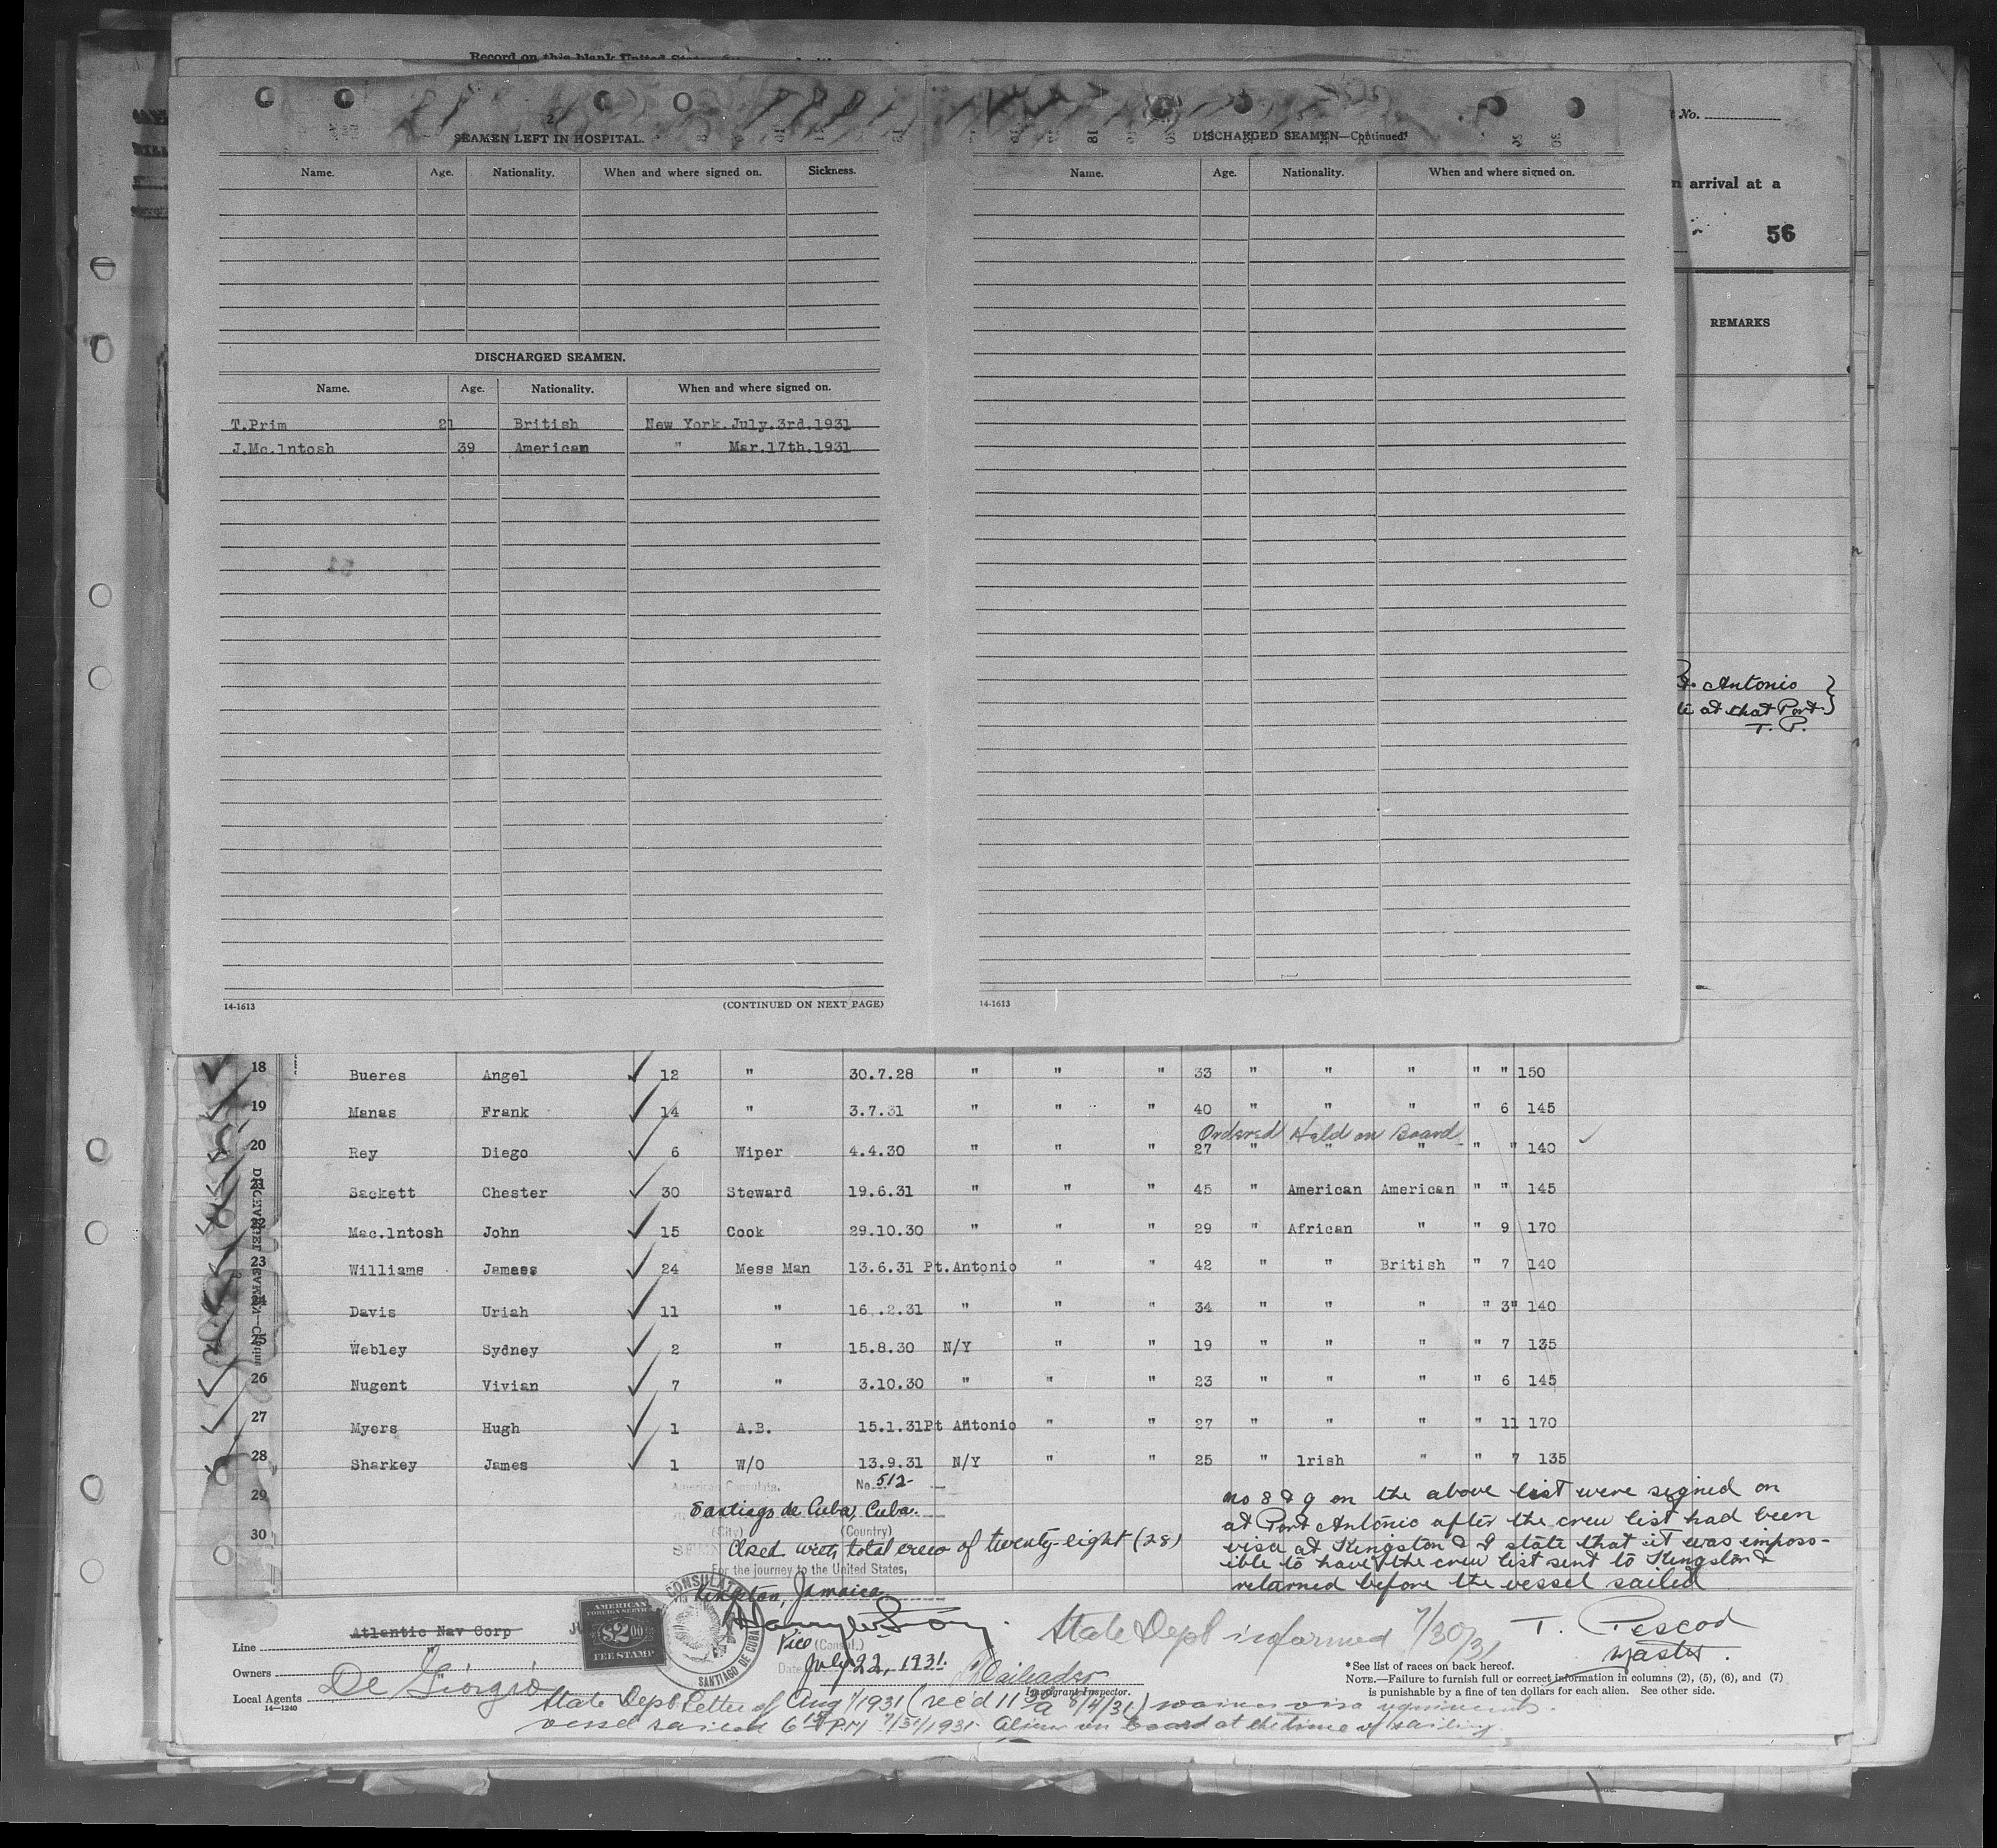 Record on this blank United States
2
SEAMEN LEFT IN HOSPITAL.
Name. Age. Nationality. When and where signed on. Sickness.
DISCHARGED SEAMEN.
Name. Age. Nationality. When and where signed on.
T.Prim 21 British New York.July.3rd.1931
J.Mc.lntosh 39 American " Mar.17th.1931
14-1613 (CONTINUED ON NEXT PAGE)
3
DISCHARGED SEAMEN—Continued
Name. Age. Nationality. When and where signed on.
14-1613
No.
arrival at a
56
REMARKS
Antonio
at that Port
T. P.
18 Bueres Angel 12 " 30.7.28 " " " 33 " " " " " 150
19 Manas Frank 14 " 3.7.31 " " " 40 " " " " 6 145
Ordered Held on Board
20 Rey Diego 6 Wiper 4.4.30 " " " 27 " " " " " 140
21 Sackett Chester 30 Steward 19.6.31 " " " 45 " American American " " 145
22 Mac.lntosh John 15 Cook 29.10.30 " " " 29 " African " " 9 170
23 Williams James 24 Mess Man 13.6.31 Pt.Antonio " " 42 " " British " 7 140
24 Davis Uriah 11 " 16.2.31 " " " 34 " " " " 3" 140
25 Webley Sydney 2 " 15.8.30 N/Y " " 19 " " " " 7 135
26 Nugent Vivian 7 " 3.10.30 " " " 23 " " " " 6 145
27 Myers Hugh 1 A.B. 15.1.31 Pt Antonio " " 27 " " " " 11 170
28 Sharkey James 1 W/O 13.9.31 N/Y " " 25 " lrish " " 7 135
29
30
American Consulate. No. 512
Santiago de Cuba, Cuba.
(City) (Country)
Closed with total crew of twenty-eight (28)
For the journey to the United States,
Kingston, Jamaica
Vice (Consul.)
Date July 22, 1931.
no 8 & 9 on the above list were signed on
at Port Antonio after the crew list had been
visa at Kingston & I state that it was imposs-
ible to have the crew list sent to Kingston &
returned before the vessel sailed
T. Pescod
Master.
AMERICAN
FOREIGN SERVICE
$2.00
FEE STAMP
CONSULATE
SANTIAGO DE CUBA
State Dept informed 7/30/31
Line Atlantic Nav Corp
Owners "
Local Agents De Giorgio
14-1240
Immigrant Inspector.
*See list of races on back hereof.
NOTE.—Failure to furnish full or correct information in columns (2), (5), (6), and (7)
is punishable by a fine of ten dollars for each alien. See other side.
State Dept Letter of Aug 1/1931 (rec'd 11 30 a 8/4/31) waives visa
vessel sailed 6 15 PM 7/31/1931. Alien on board at the time of sailing.